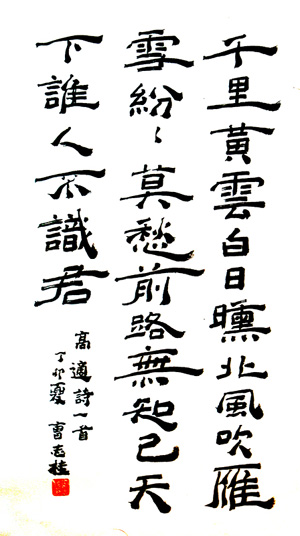 千里黃雲白日曛北風吹雁
雪紛〻莫愁前路無知己天
下誰人不識君
高適詩一首
丁卯夏 曹志桂